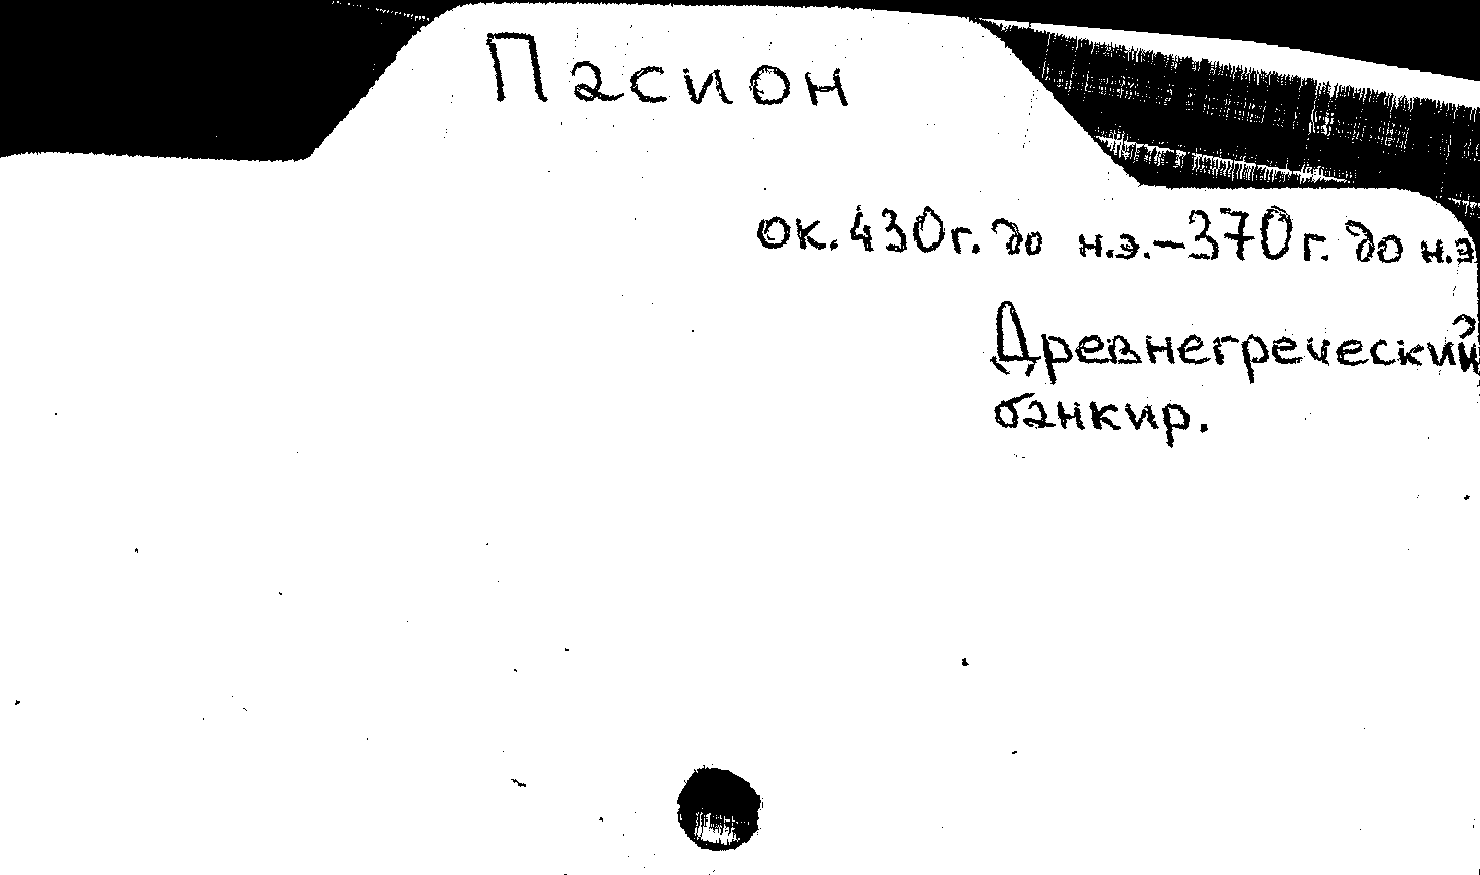 Пасион
ок. 430 г. до н.э. – 370 г. до н.э
Древнегреческий
банкир.